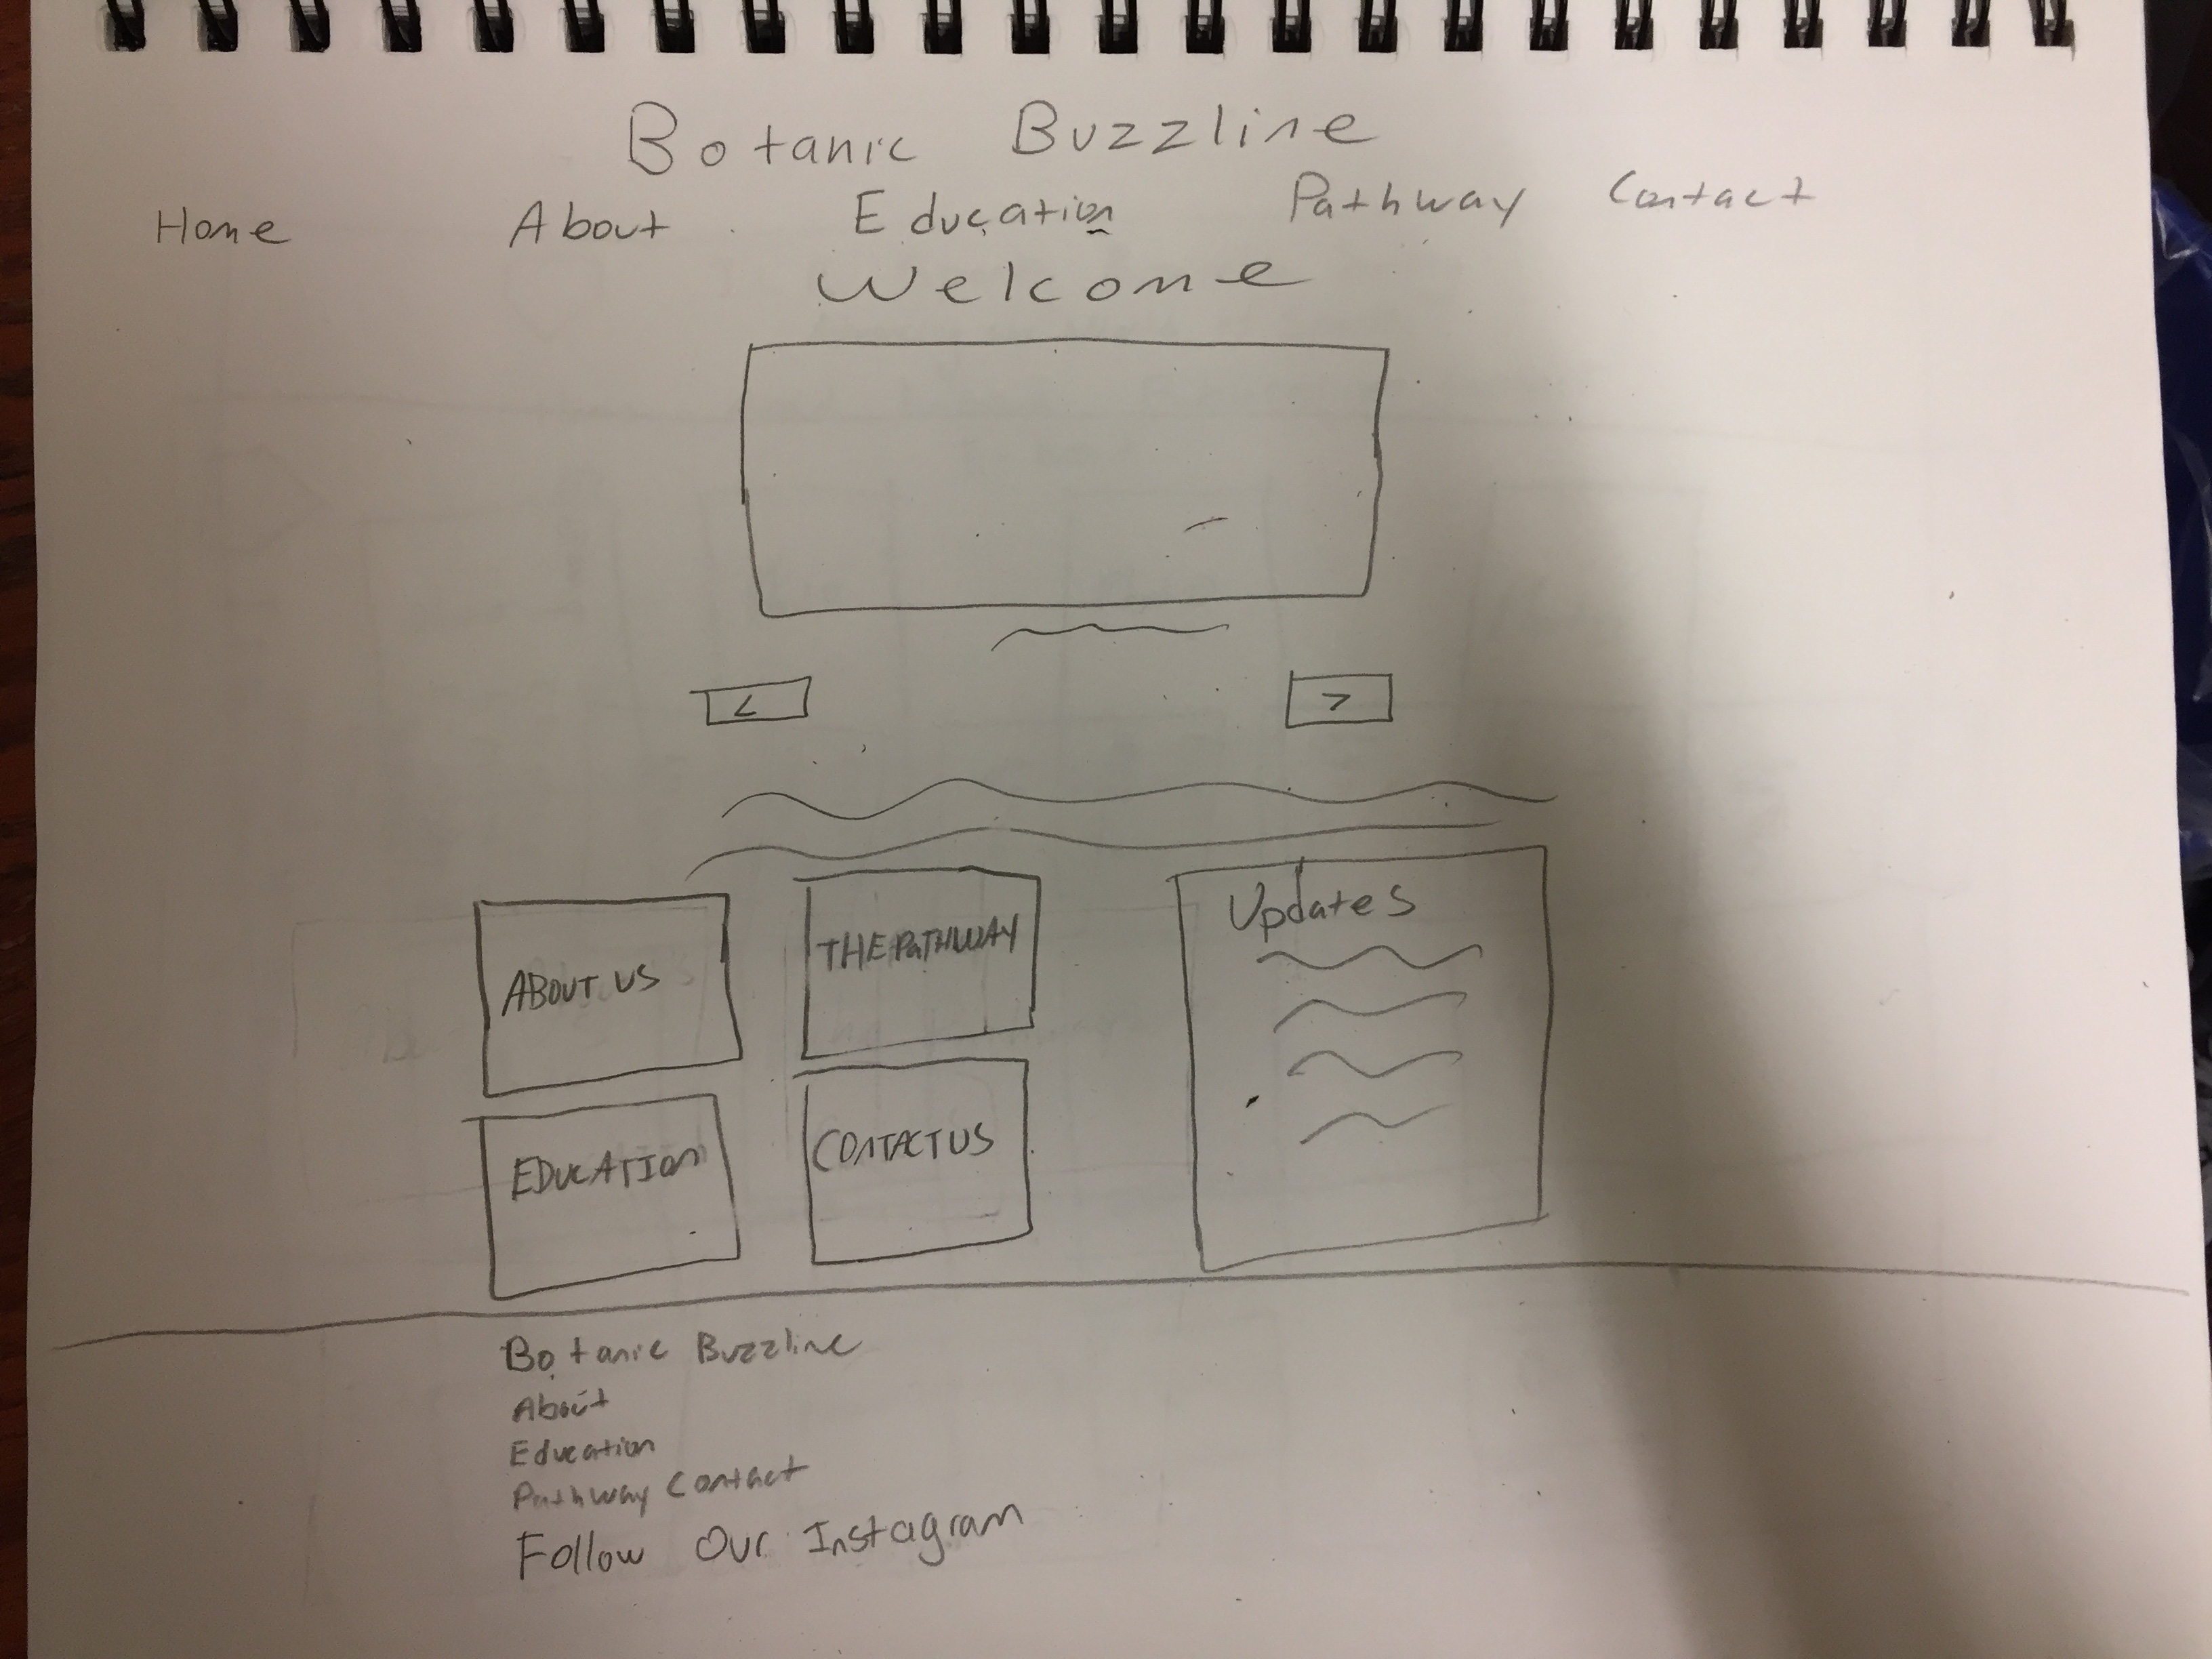 Botanic Buzzline
Home About Education Pathway Contact
Welcome
< >
ABOUT US THE PATHWAY Updates
EDUCATION CONTACT US
Botanic Buzzline
About
Education
Pathway Contact
Follow Our Instagram